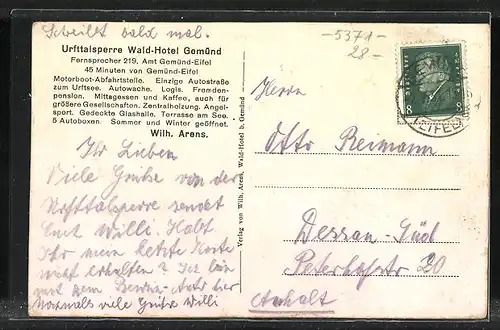 Schreibt bald mal.
Urfttalsperre Wald-Hotel Gemünd
Fernsprecher 219, Amt Gemünd-Eifel
45 Minuten von Gemünd-Eifel
Motorboot-Abfahrtstelle. Einzige Autostraße
zum Urftsee. Autowache. Logis. Fremden-
pension. Mittagessen und Kaffee, auch für
größere Gesellschaften. Zentralholzung. Angel-
sport. Gedeckte Glashalle. Terrasse am See.
5 Autoboxen. Sommer und Winter geöffnet.
Wilh. Arens.
Ihr Lieben
Viele Grüße von der
Urfttalsperre sendet
Euch Willi. Habt
Ihr mein letzte Karte
nicht erhalten? Ich bin
mit dem
Nochmals viele Grüße Willi
Verlag von Wilh. Arens, Wald-Hotel b. Gemünd
-5371-
28-
8 8
Herrn
Otto Reimann
Dessau-Süd
Anhalt